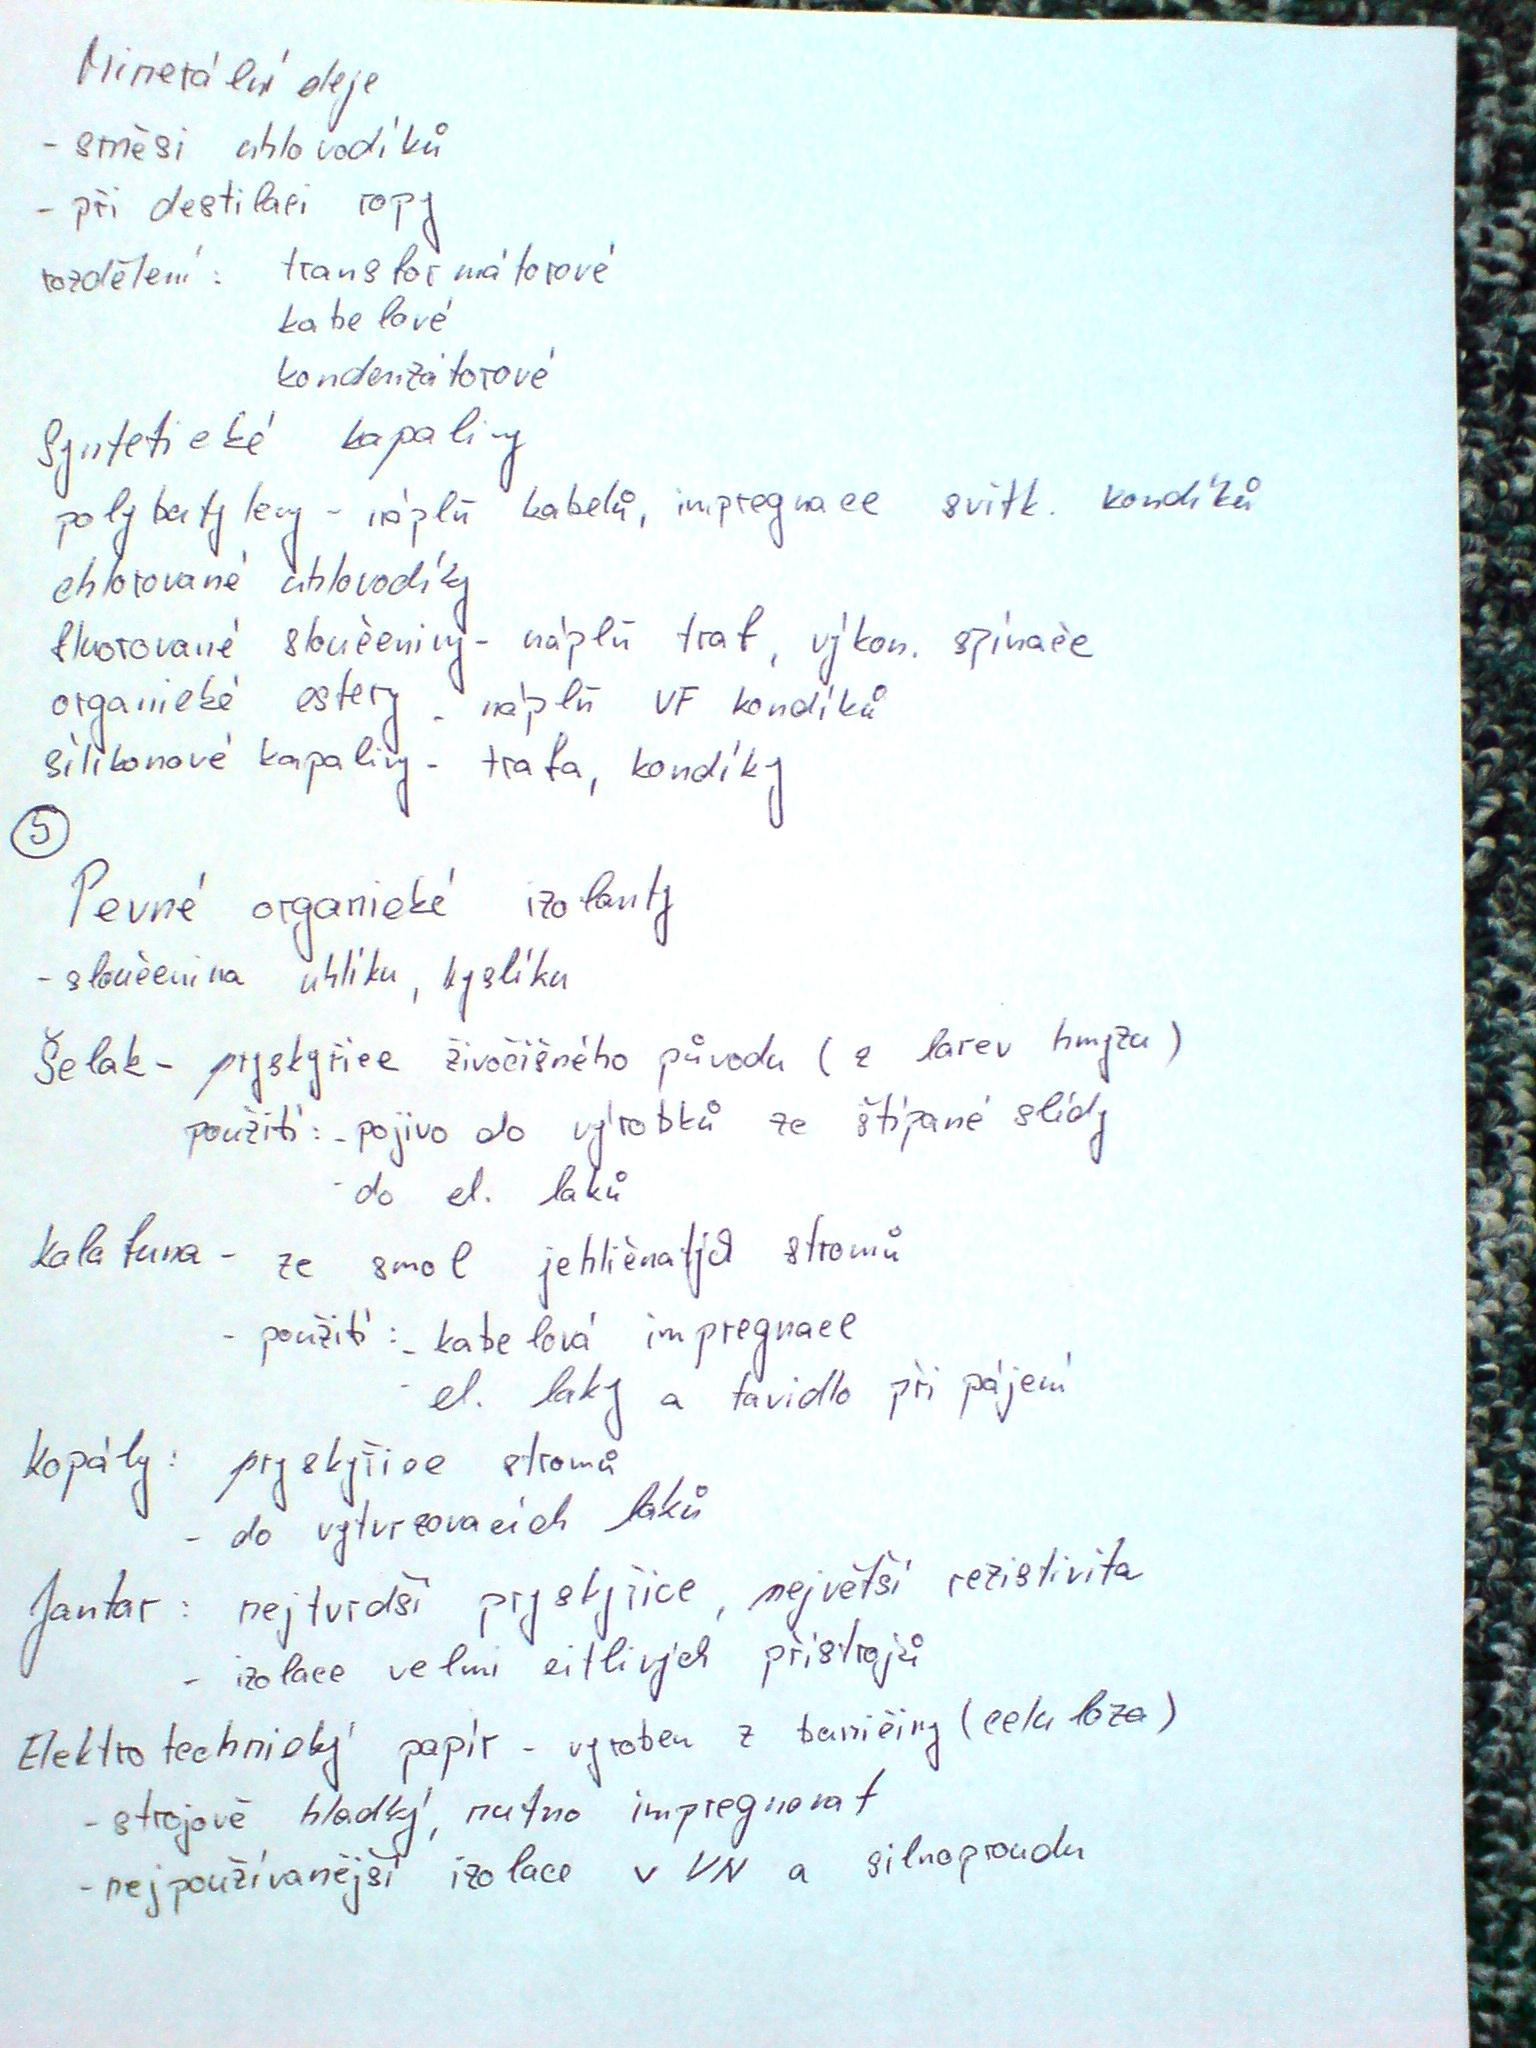 Minerální oleje
- směsi uhlovodíků
- při destilaci ropy
rozdělení: transformátorové
kabelové
kondenzátorové
Syntetické kapaliny
polybutyleny - náplň kabelů, impregnace svitk. kondíků
chlorované uhlovodíky
fluorované sloučeniny - náplň traf, výkon. spínače
organické estery - náplň VF kondíků
silikonové kapaliny - trafa, kondíky
5
Pevné organické izolanty
- sloučenina uhlíku, kyslíku
Šelak - pryskyřice živočišného původu (z larev hmyzu)
použití: - pojivo do výrobků ze štípané slídy
- do el. laků
Kalafuna - ze smol jehličnatých stromů
- použití: - kabelová impregnace
- el. laky a tavidlo při pájení
Kopály: pryskyřice stromů
- do vytvrzovacích laků
Jantar: nejtvrdší pryskyřice, největší rezistivita
- izolace velmi citlivých přístrojů
Elektrotechnický papír - vyroben z buničiny (celulóza)
- strojově hladký, nutno impregnovat
- nejpoužívanější izolace v VN a silnoproudu